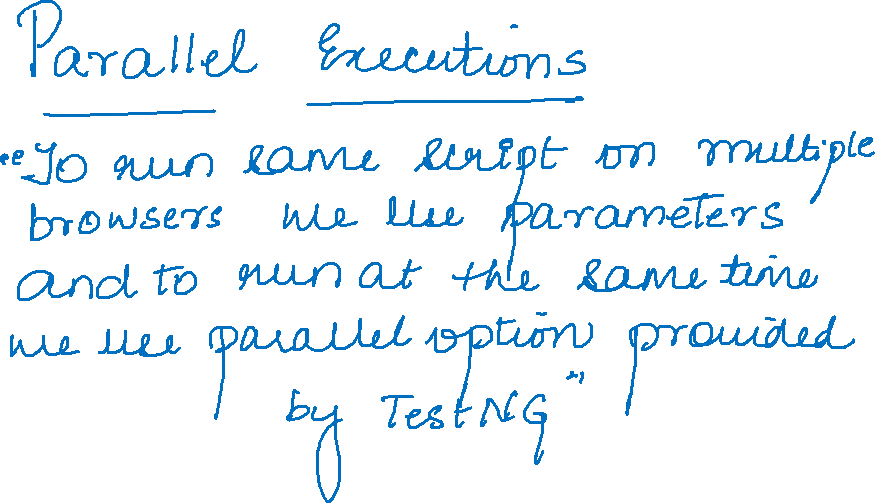 Parallel Executions
"To run same script on multiple
browsers we use parameters
and to run at the same time
we use parallel option provided
by TestNG"